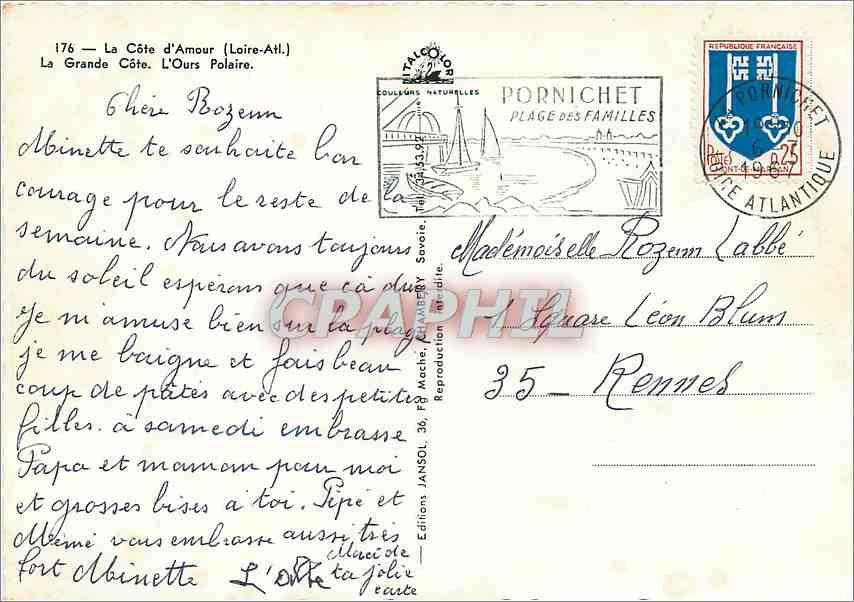 176 — La Côte d'Amour (Loire-Atl.)
La Grande Côte. L'Ours Polaire.
Chère Rozenn
Minette te souhaite bon
courage pour le reste de la
semaine. Nous avons toujours
du soleil espérons que ça dure
Je m'amuse bien sur la plage
je me baigne et fais beau
coup de pâtés avec des petites
filles. à samedi embrasse
Papa et maman pour moi
et grosses bises à toi. Pépé et
Mémé vous embrasse aussi très
fort Minette
Merci de
ta jolie
carte
ITALCOLOR
COULEURS NATURELLES
PORNICHET
PLAGE DES FAMILLES
REPUBLIQUE FRANÇAISE
Postes 0,25
MONT-DE-MARSAN
PORNICHET
LOIRE ATLANTIQUE
Mademoiselle Rozenn Labbé
1 Square Léon Blum
35 - Rennes
— Editions JANSOL, 36, Fg Maché, CHAMBERY Savoie. Tél. 34.53.92
Reproduction interdite.
CPAPHIL